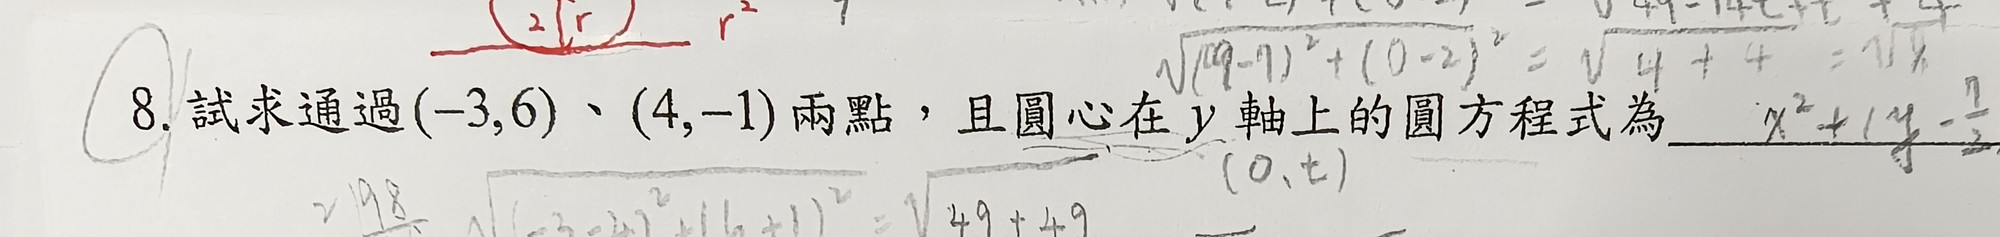 2 r r²
√(9-7)²+(0-2)² = √4+4 = √8
8. 試求通過(−3,6)、(4,−1)兩點，且圓心在 y 軸上的圓方程式為 x²+(y-7/2
(0,t)
√98 √(-3-4)²+(6+1)² = √49+49